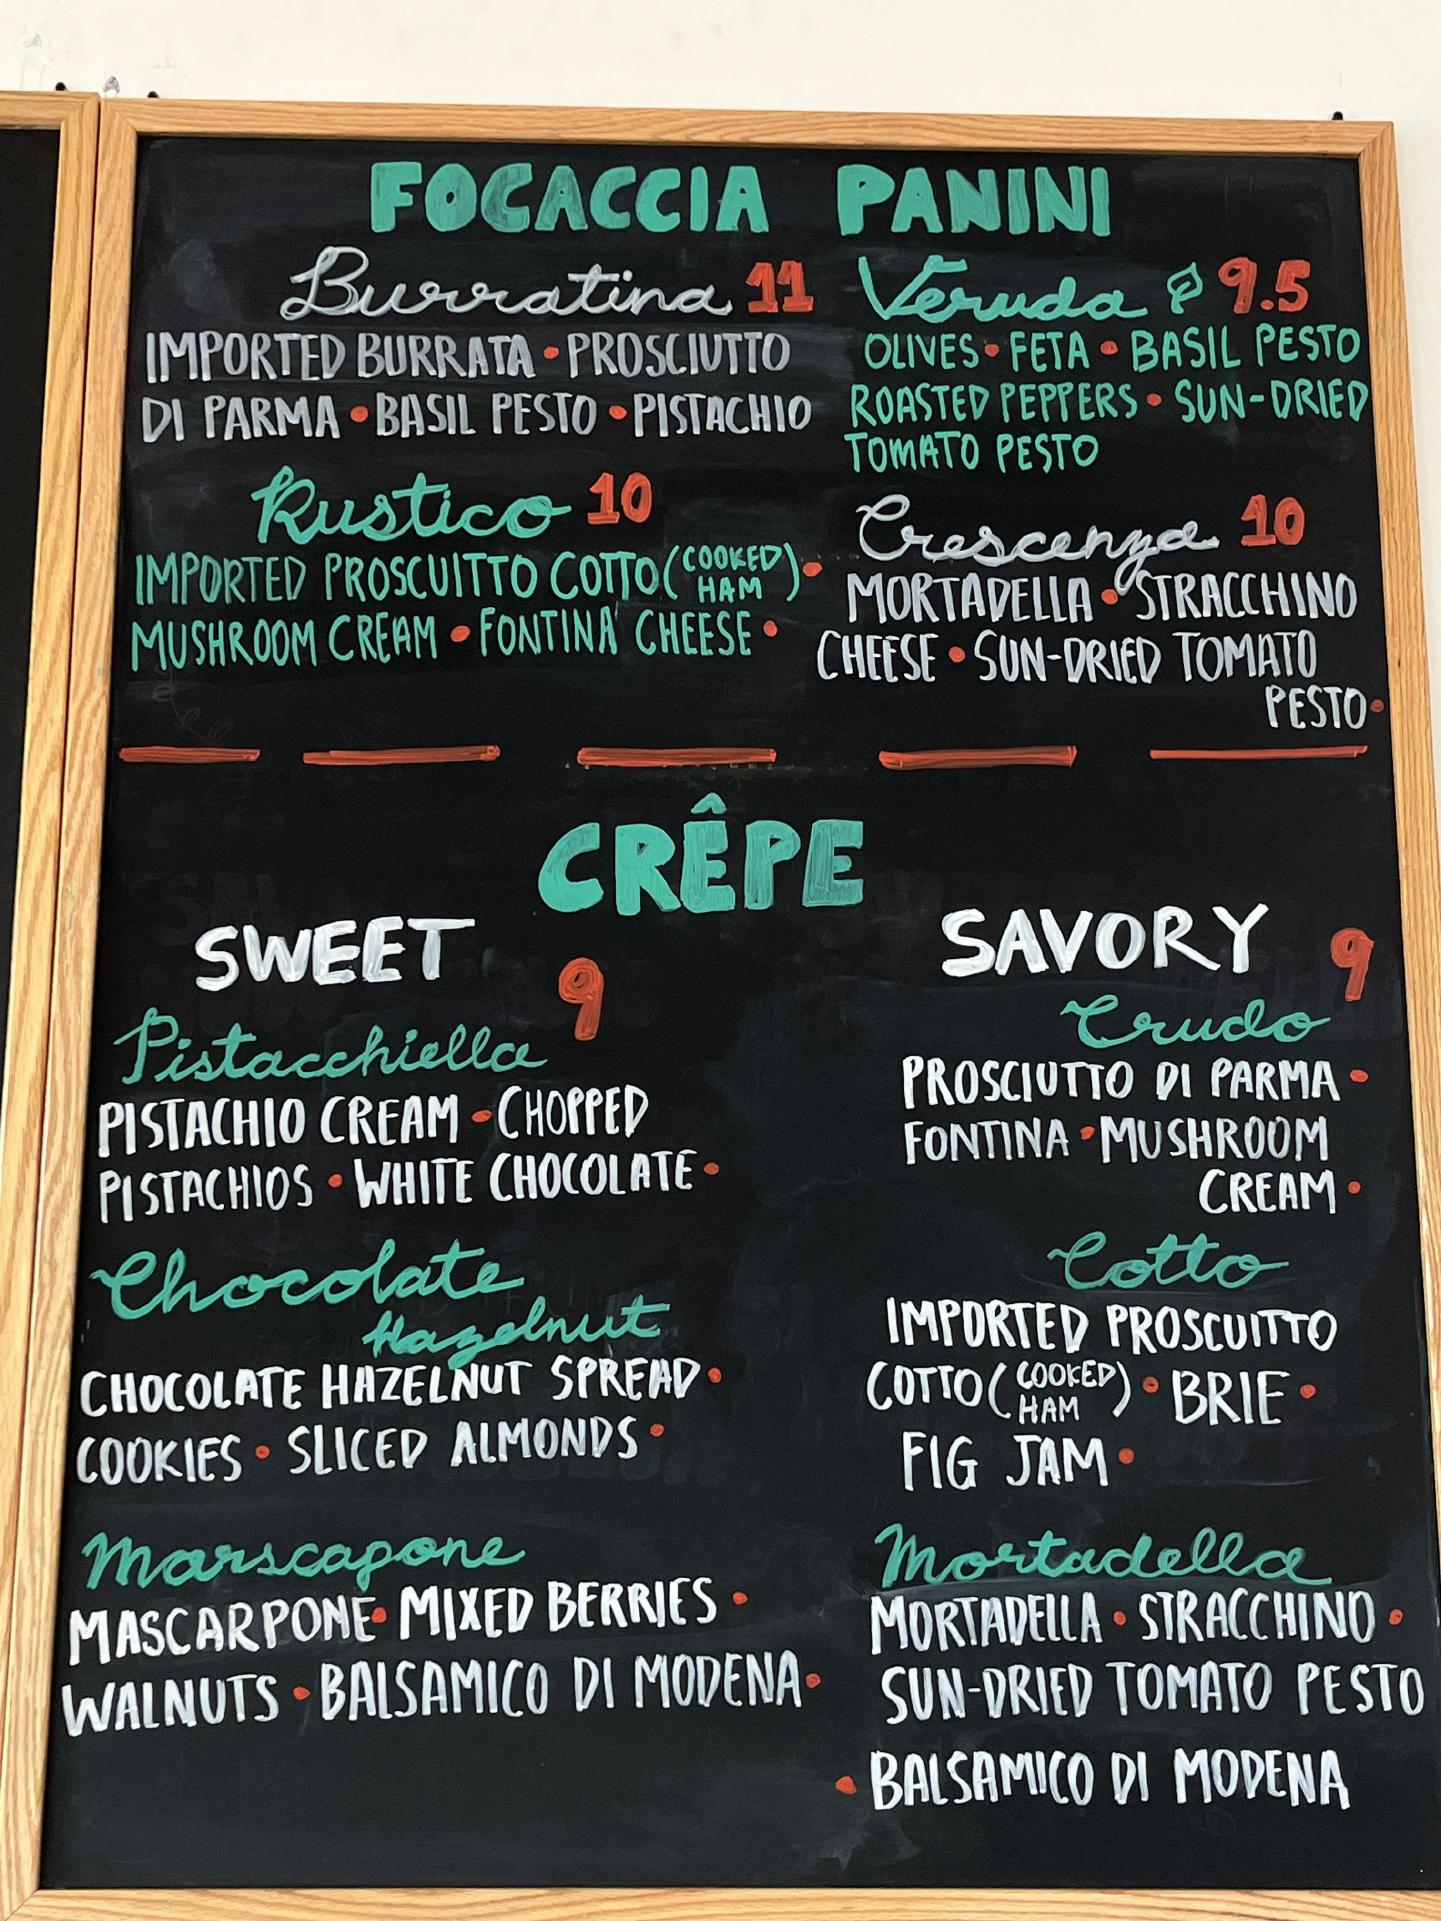 FOCACCIA PANINI
Burratina 11
IMPORTED BURRATA • PROSCIUTTO
DI PARMA • BASIL PESTO • PISTACHIO
Veruda 9.5
OLIVES • FETA • BASIL PESTO
ROASTED PEPPERS • SUN-DRIED
TOMATO PESTO
Rustico 10
IMPORTED PROSCUITTO COTTO (COOKED HAM) •
MUSHROOM CREAM • FONTINA CHEESE •
Crescenza 10
MORTADELLA • STRACCHINO
CHEESE • SUN-DRIED TOMATO
PESTO •
CRÊPE
SWEET 9
Pistacchiella
PISTACHIO CREAM • CHOPPED
PISTACHIOS • WHITE CHOCOLATE •
Chocolate
Hazelnut
CHOCOLATE HAZELNUT SPREAD •
COOKIES • SLICED ALMONDS •
Marscapone
MASCARPONE • MIXED BERRIES •
WALNUTS • BALSAMICO DI MODENA •
SAVORY 9
Crudo
PROSCIUTTO DI PARMA •
FONTINA • MUSHROOM
CREAM •
Cotto
IMPORTED PROSCUITTO
COTTO (COOKED HAM) • BRIE •
FIG JAM •
Mortadella
MORTADELLA • STRACCHINO •
SUN-DRIED TOMATO PESTO
• BALSAMICO DI MODENA